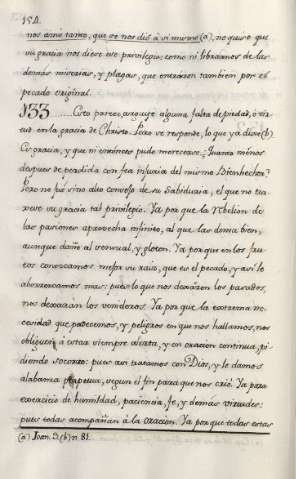 154.
nos amó tanto, que se nos dió á sí mismo (a), no quiso que
su gracia nos diese ese privilegio; como ni librarnos de las
demás miserias, y plagas, que entráron tambien por el
pecado original.
133 Esto parece arguye alguna falta de piedad, ó vir-
tud en la gracia de Christo. Pero se responde, lo que ya dixe (b)
Es gracia, y que ni entónces pude merecerse. ¿Quanto ménos
despues de perdida con fea injuria del mismo Bienhechor?
Pero no fué sino alto consejo de su Sabiduría, el que no tra-
xese su gracia tal privilegio. Ya por que la rebelion de
las pasiones aprovecha infinito, al que las doma bien,
aunque dañe al sensual, y gloton. Ya porque en los fru-
tos conozcamos mejor su raiz, que es el pecado, y así le
aborrezcamos mas; pues lo que nos dexáron los pasados,
nos dexarán los venideros. Ya por que la extrema ne-
cesidad que padecemos, y peligros en que nos hallamos, nos
obliguen á estar siempre alerta, y en oracion continua, pi-
diendo socorro: pues así tratamos con Dios, y le damos
alabanza perpetua, segun el fin para que nos crió. Ya para
exercicio de humildad, paciencia, fe, y demás virtudes:
pues todas acompañan á la oracion. Ya porque todas estas
(a) Joan. 3. (b) n. 81.